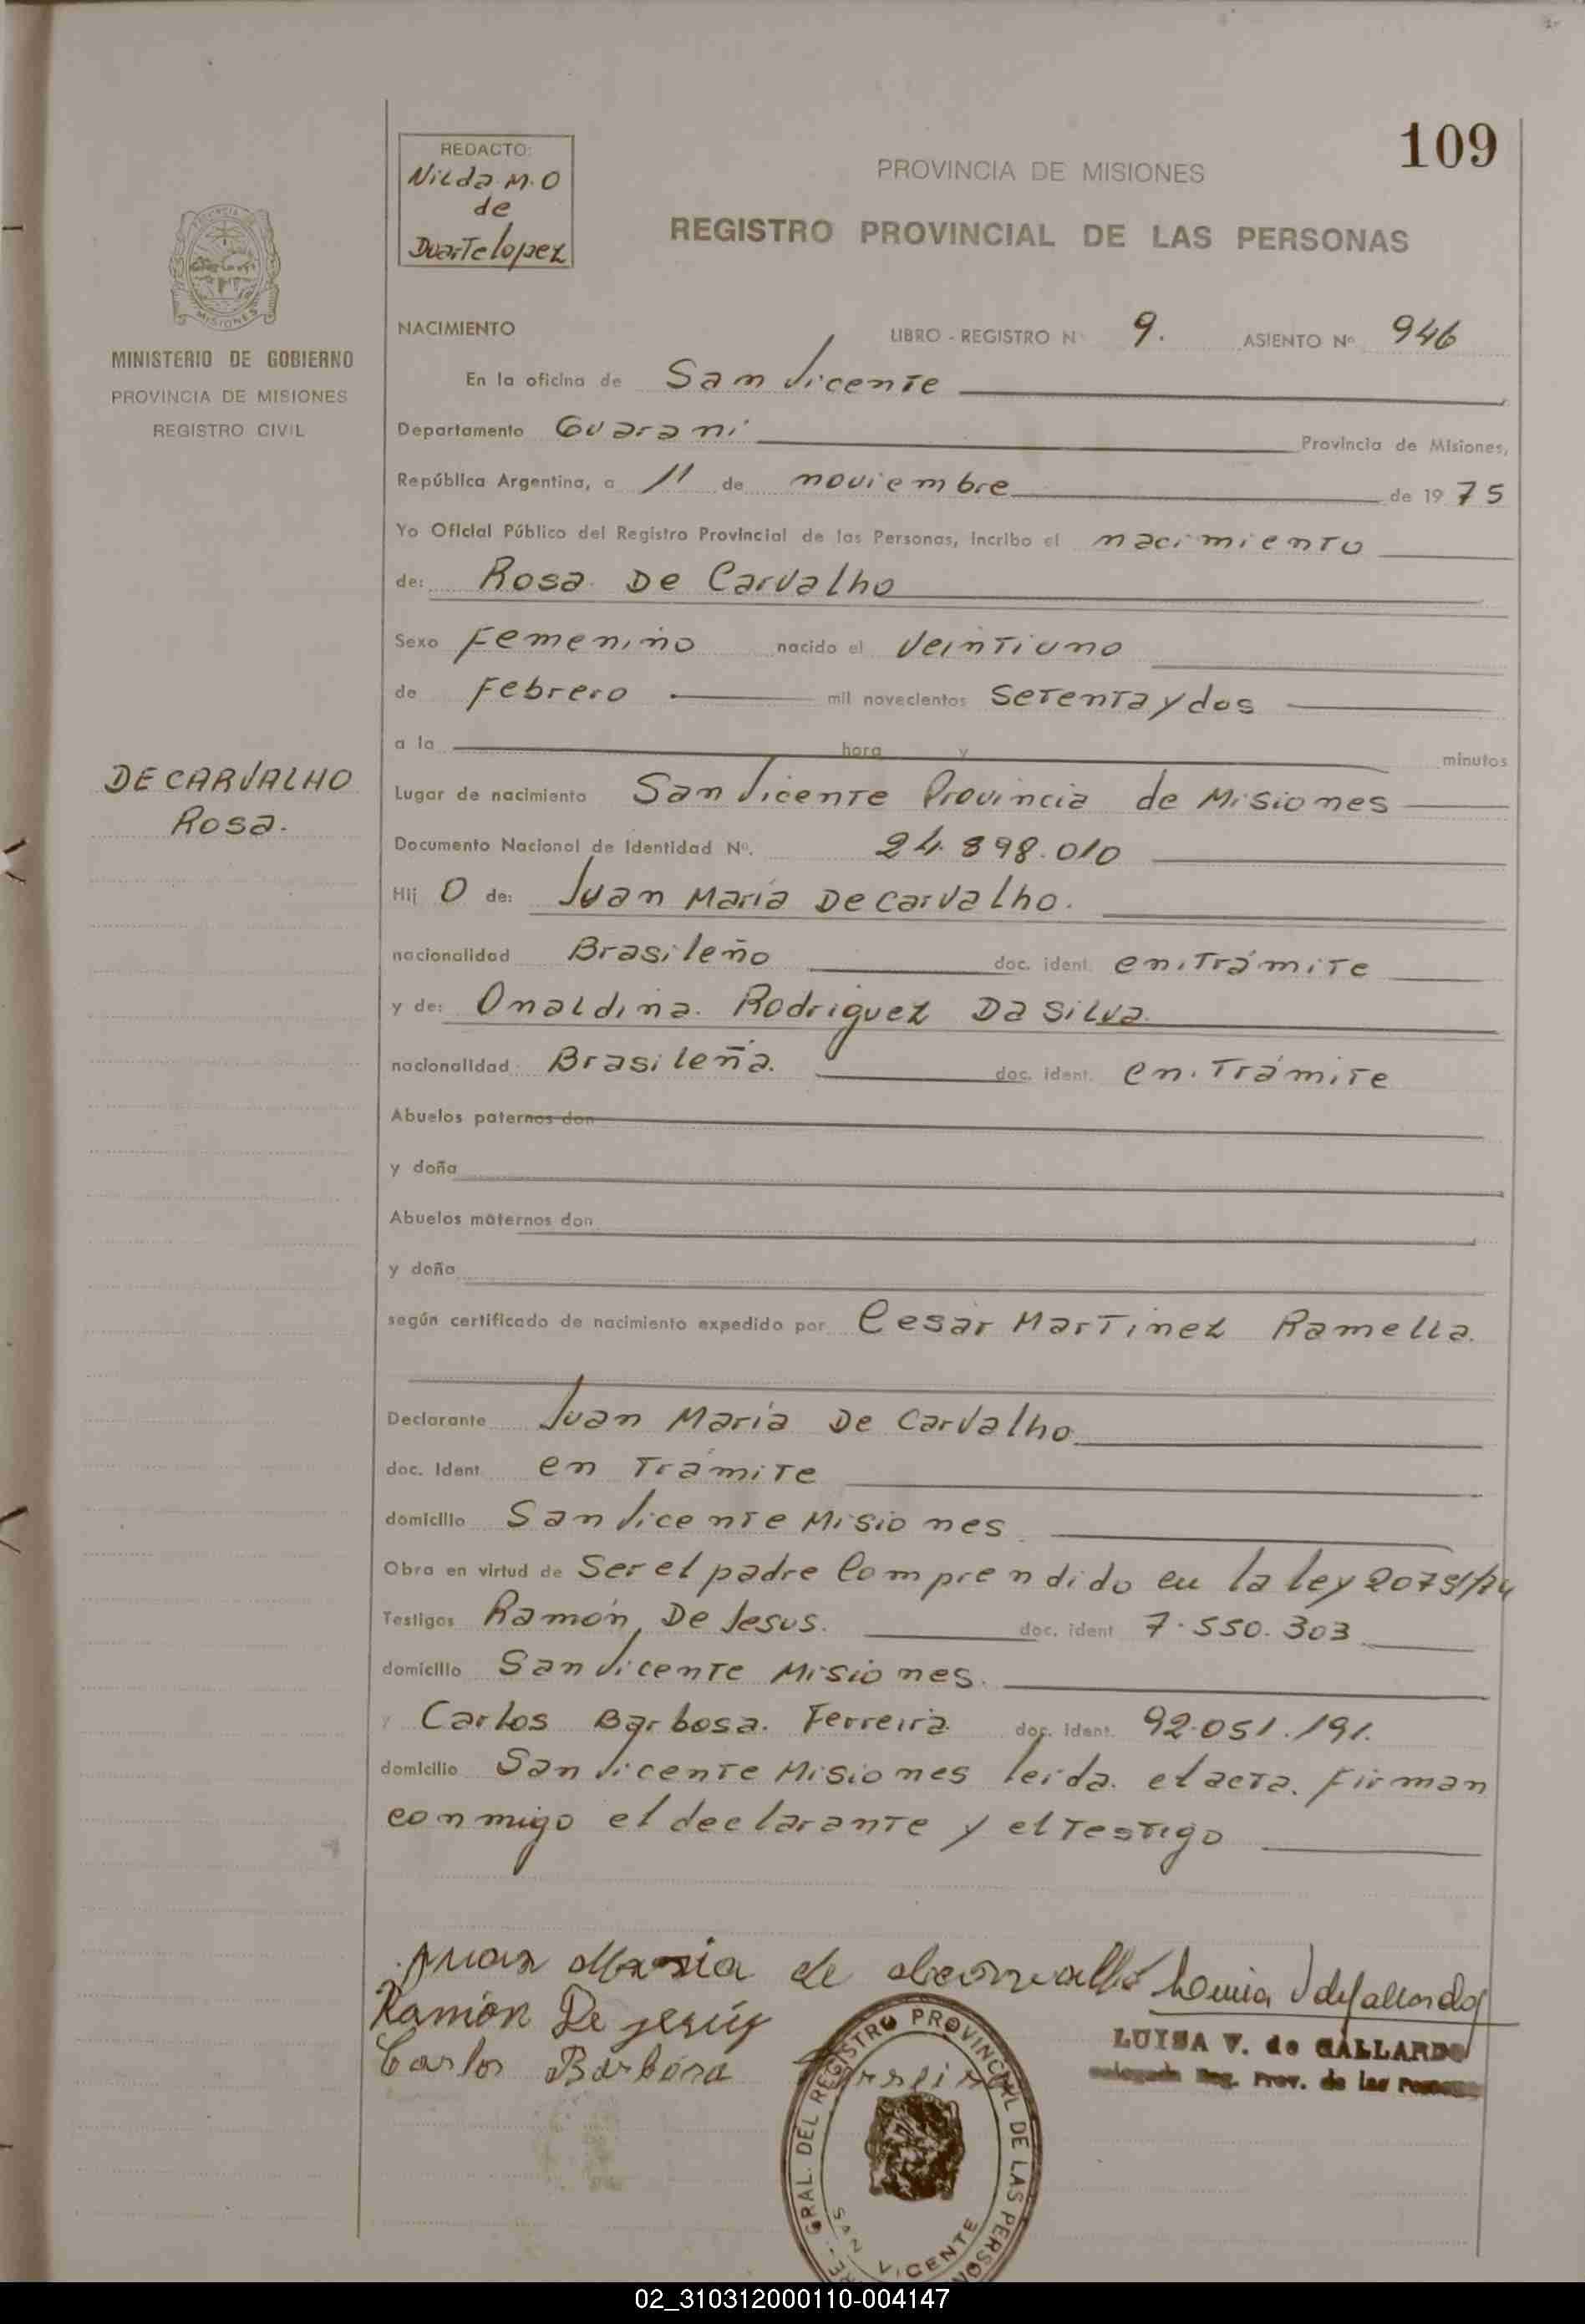 109
REDACTO:
Nilda M. O
de
Duarte lopez
PROVINCIA DE MISIONES
REGISTRO PROVINCIAL DE LAS PERSONAS
MISIONES
MINISTERIO DE GOBIERNO
PROVINCIA DE MISIONES
REGISTRO CIVIL
NACIMIENTO LIBRO - REGISTRO Nº 9. ASIENTO Nº 946
En la oficina de San Vicente
Departamento Guarani Provincia de Misiones,
República Argentina, a 11 de noviembre de 1975
Yo Oficial Público del Registro Provincial de las Personas, incribo el nacimiento
de: Rosa De Carvalho
Sexo Femenino nacido el Veintiuno
de Febrero mil novecientos Setenta y dos
a la hora y minutos
DE CARVALHO
Rosa.
Lugar de nacimiento San Vicente Provincia de Misiones
Documento Nacional de Identidad Nº. 24.898.010
Hij O de: Juan Maria De Carvalho.
nacionalidad Brasileño doc. ident. en Trámite
y de: Onaldina Rodriguez Da Silva
nacionalidad: Brasileña. doc. ident. en Trámite
Abuelos paternos don
y doña
Abuelos maternos don
y doña
según certificado de nacimiento expedido por Cesar Martinez Ramella.
Declarante Juan Maria De Carvalho
doc. Ident en Trámite
domicilio San Vicente Misiones
Obra en virtud de Ser el padre Comprendido en la ley 20751/74
Testigos Ramón De Jesus. doc. ident 7.550.303
domicilio San Vicente Misiones.
y Carlos Barbosa Ferreira doc. ident. 92.051.191.
domicilio San Vicente Misiones leida el acta. Firman
conmigo el declarante y el Testigo
Juan Maria de
Ramón De jesús
Carlos Barbosa
LUISA V. de GALLARDO
Delegada Reg. Prov. de las Personas
GRAL. DEL REGISTRO PROVINCIAL DE LAS PERSON
SAN VICENTE
02_310312000110-004147